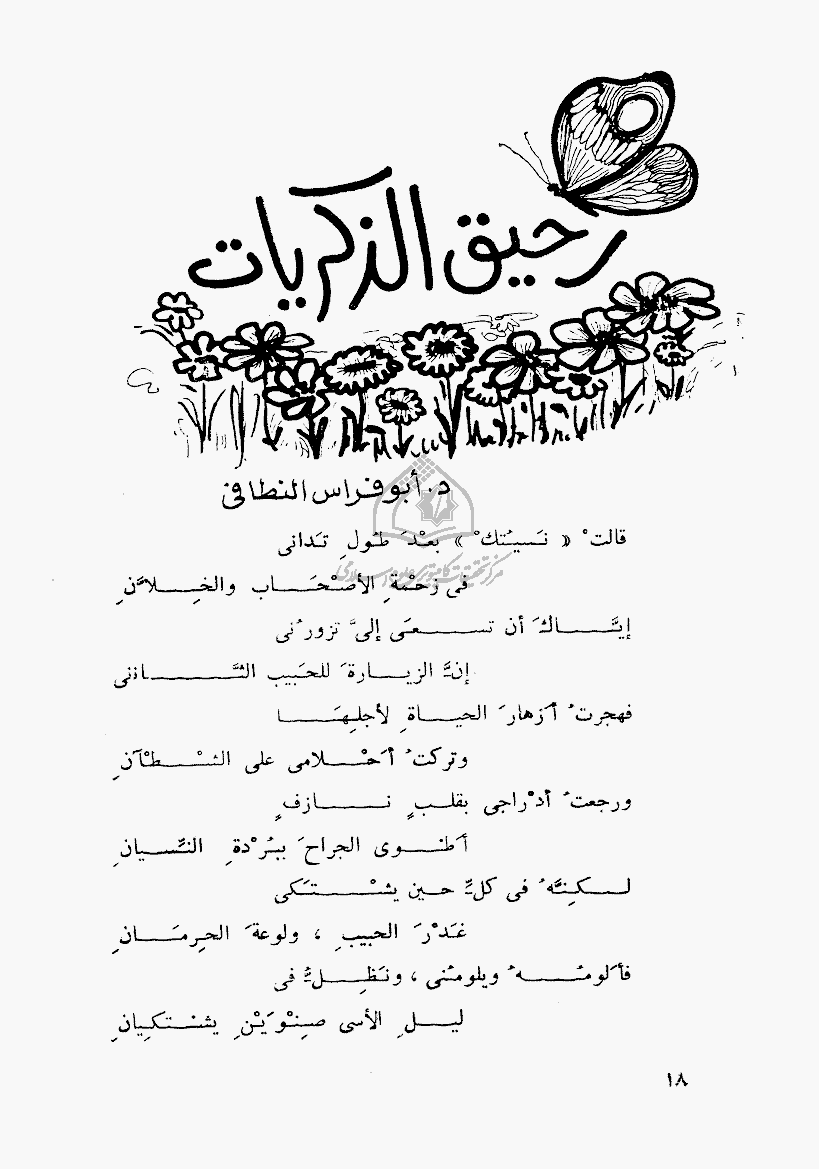 رحيق الذكريات
د. أبو فراس النطافي
قالتْ « نَسيتُكَ » بعْدَ طُولِ تَدانى
فى زحْمةِ الأصْحَاب والخِلاَّنِ
إيَّاكَ أن تسعَى إلىَّ تزورُنى
إنَّ الزيارةَ للحَبيب الثَّانى
فهجرتُ أزهارَ الحياةِ لأجلِهَا
وتركتُ أحْلامى على الشْطآنِ
ورجعتُ أدْراجى بقلبٍ نازفٍ
أطوى الجراحَ ببُرْدةِ النِّسيانِ
لكنَّهُ فى كلِّ حين يشْتَكى
غَدْرَ الحبيبِ ، ولوعةَ الحِرمَانِ
فألومُهُ ويلومُنى ، ونَظِلُّ فى
ليلِ الأسى صِنْوَيْنِ يشتكِيانِ
١٨